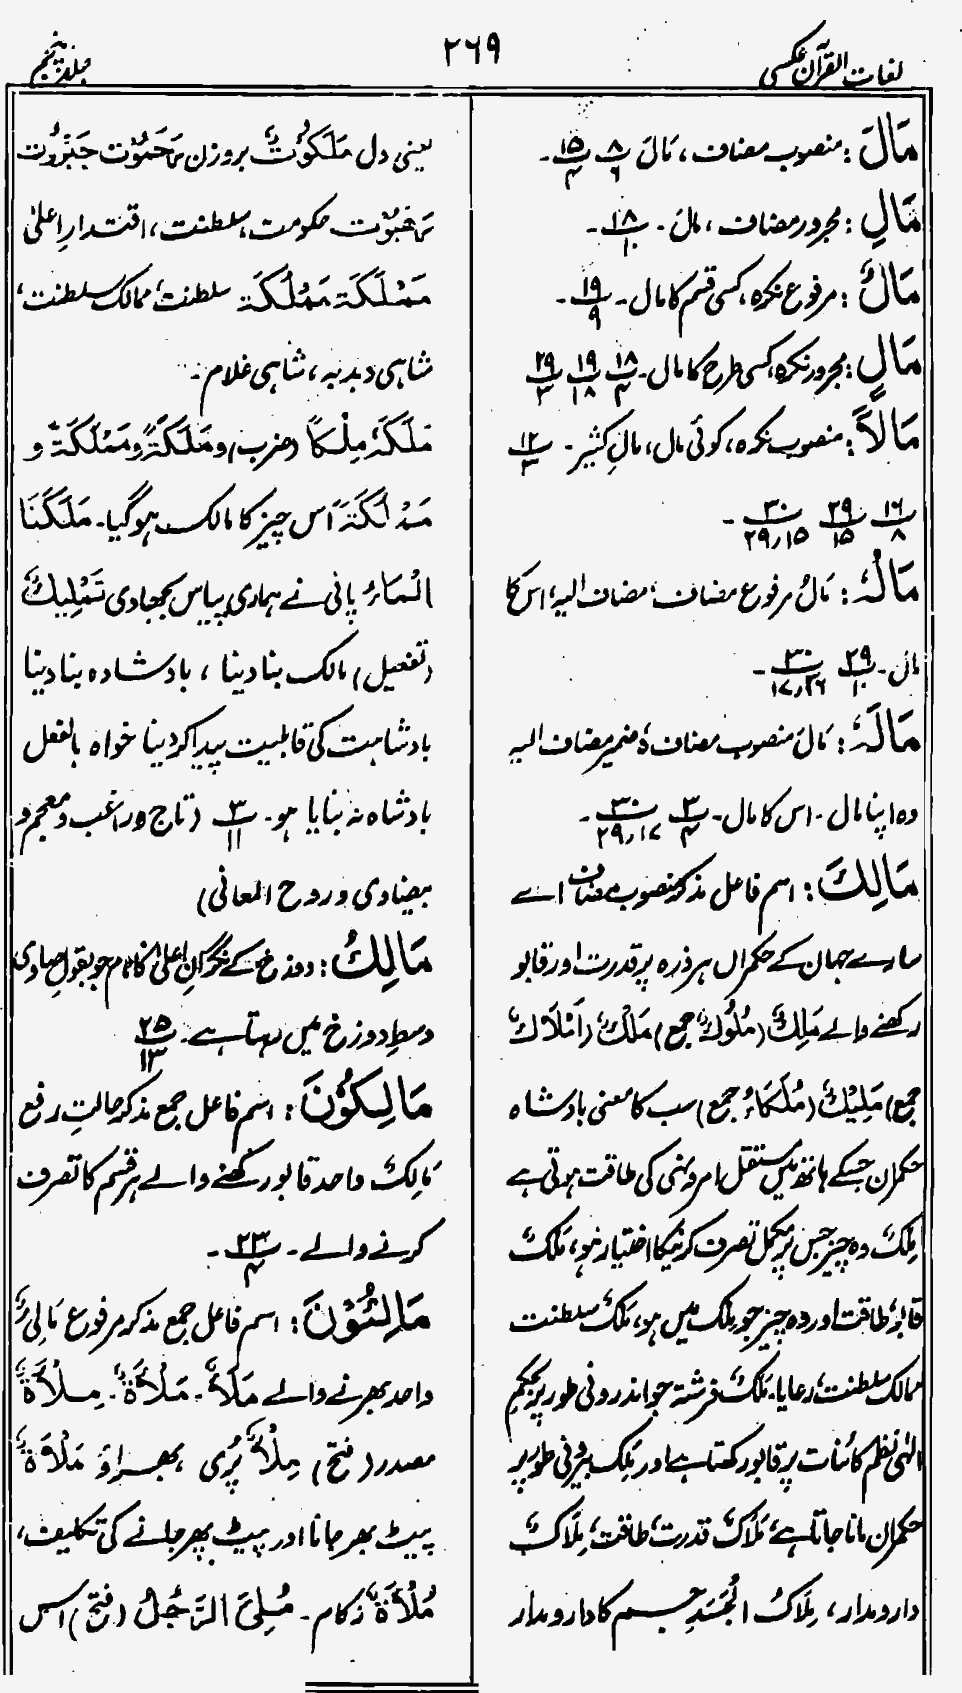 لغات القرآن عکسی
۲۶۹
جلد پنجم
مَالَ : منصوب مضاف، مَالَ ۸/۶ ۱۵/۴ ۔
مَالِ : مجرور مضاف، مال ۔ ۱۸/۱۰ ۔
مَالٌ : مرفوع نکرہ، کسی قسم کا مال ۔ ۱۹/۹ ۔
مَالٍ : مجرور نکرہ، کسی طرح کا مال ۔ ۱۸/۴ ۱۹/۱۸ ۲۹/۳
مَالاً : منصوب نکرہ، کوئی مال، مالِ کثیر ۔ ۱۲/۳
۱۶/۸ ۲۹/۱۵ ۳۰/۲۹،۱۵ ۔
مَالُہٗ : مَالُ مرفوع مضاف، ہٗ مضاف الیہ، اس کا
مال ۔ ۲۹/۱۰ ۳۰/۱۷،۲۶ ۔
مَالَہٗ : مَالَ منصوب مضاف ہٗ ضمیر مضاف الیہ
وہ اپنا مال ۔ اس کا مال ۔ ۳/۴ ۳۰/۲۹،۱۷ ۔
مَالِکَ : اسم فاعل مذکر منصوب مضاف اے
سارے جہان کے حکمراں ہر ذرہ پر قدرت اور قابو
رکھنے والے مَلِکٌ (مُلُوکٌ جمع) مَلْکٌ (اَمْلَاکٌ
جمع) مَلِیْکٌ (مُلَکَاءُ جمع) سب کا معنی بادشاہ
حکمران جسکے ہاتھ میں مستقل امر و نہی کی طاقت ہوتی ہے
مِلْکٌ وہ چیز جس پر مکمل تصرف کرنیکا اختیار ہو، مَلْکٌ
قابو، طاقت اور وہ چیز جو مِلک میں ہو، مُلْکٌ سلطنت
ممالک سلطنت، رعایا۔ مَلَکٌ فرشتہ جو اندرونی طور پر بحکمِ
الٰہی نظم کائنات پر قابو رکھتا ہے اور مَلِک بیرونی طور پر
حکمران مانا جاتا ہے، مَلَاکٌ قدرت، طاقت، مِلَاکٌ
دارومدار، مِلَاکُ الْجَسَدِ جسم کا دارومدار
یعنی دل مَلَکُوْتٌ بروزن رَحَمُوْت جَبَرُوْت
رَھَبُوْت حکومت، سلطنت، اقتدارِ اعلیٰ
مَمْلَکَۃ مَمْلُکَۃ سلطنت، ممالک سلطنت،
شاہی دبدبہ، شاہی غلام ۔
مَلَکَہٗ مِلْکاً (ضرب) و مَلَکَۃً و مَمْلَکَۃً و
مَمْلُکَۃً اس چیز کا مالک ہو گیا۔ مَلَکَنَا
الْمَاءُ پانی نے ہماری پیاس بجھادی تَمْلِیْکٌ
(تفعیل) مالک بنا دینا ، بادشاہ بنا دینا
بادشاہت کی قابلیت پیدا کر دینا خواہ بالفعل
بادشاہ نہ بنایا ہو۔ ۳/۱۱ (تاج و راغب و معجم و
بیضاوی و روح المعانی)
مَالِکُ : دوزخ کے نگرانِ اعلیٰ کا نام جو بقولِ صاوی
وسطِ دوزخ میں رہتا ہے ۔ ۲۵/۱۳
مَالِکُوْنَ : اسم فاعل جمع مذکر حالتِ رفع
مَالِکٌ واحد قابو رکھنے والے ہر قسم کا تصرف
کرنے والے ۔ ۲۳/۴ ۔
مَالِئُوْنَ : اسم فاعل جمع مذکر مرفوع مَالِیٌٔ
واحد بھرنے والے مَلَأٌ ۔ مَلْأَۃٌ ۔ مِلْأَۃٌ
مصدر (فتح) مِلْأٌ پُری ، بھراؤ مَلْأَۃٌ
پیٹ بھر جانا اور پیٹ بھر جانے کی تکلیف،
مُلْأَۃٌ زکام ۔ مُلِئَ الرَّجُلُ (فتح) اس